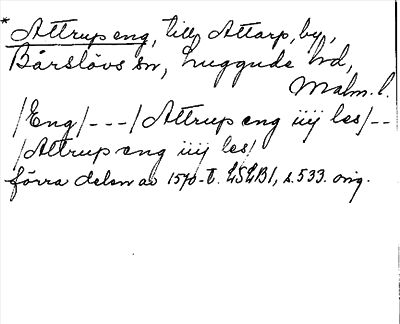 * Attrup eng, till Attarp, by,
Bårslövs sn, Luggude hd,
Malm. l.
/Eng/ - - - / Attrup eng iiij les / - -
/Attrup eng iiij les/
förra delen av 1570-t. LSLB1, s. 533. orig.